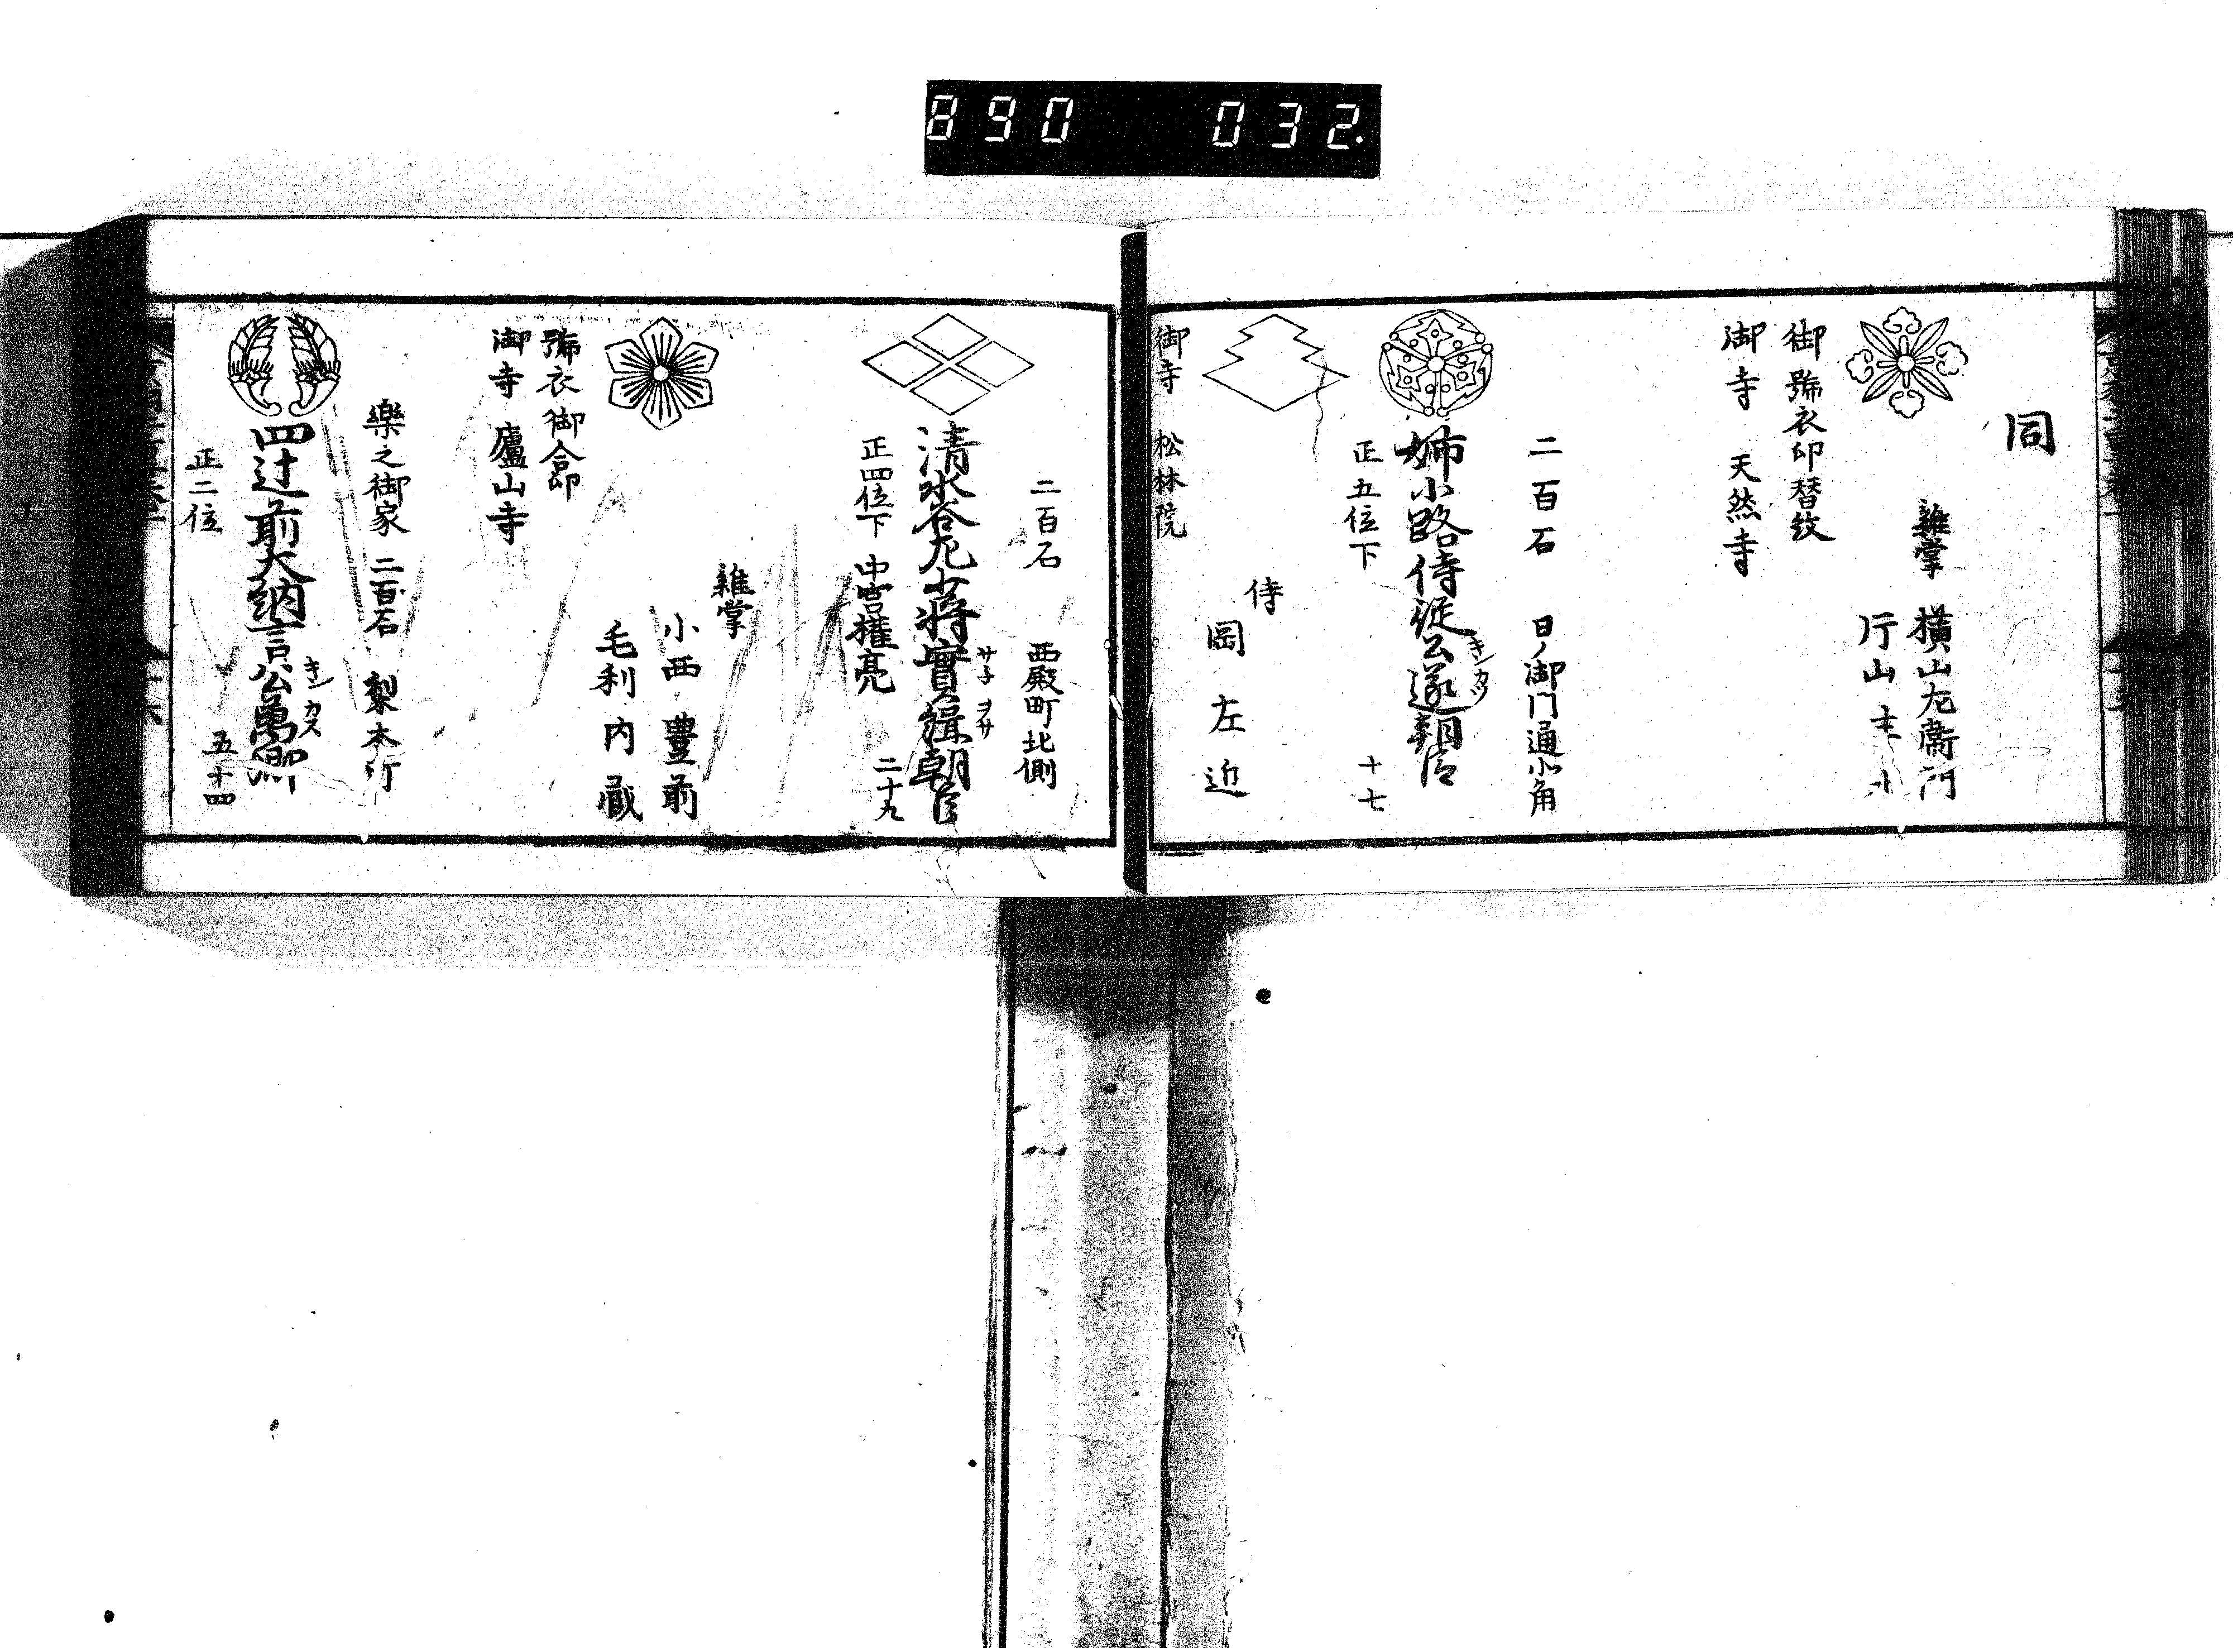 890 032.
同
雜掌 橫山左衛門
片山主
御號衣印替紋
御寺 天然寺
二百石 日ノ御門通北角
姉小路侍従公遂朝臣
キン カツ
正五位下 十七
侍
岡左近
御寺 松林院
二百石 西殿町北側
清水谷左少將實緝朝臣
サ子 ヲサ
正四位下 中宮權亮 二十九
雜掌
小西豊前
毛利内蔵
號衣御合印
御寺 廬山寺
樂之御家 二百石 梨木町
四辻前大納言公萬卿
キン カス
正二位 五十四